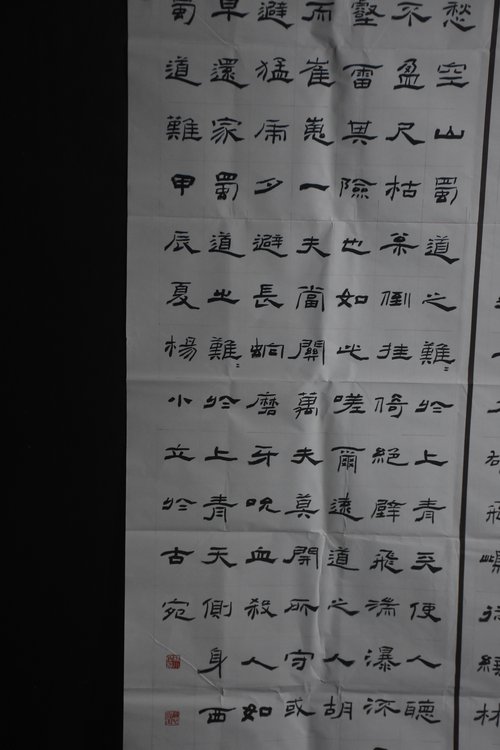 飛雌從繞林
愁空山蜀道之難〻於上青天使人聽
不盈尺枯松倒挂倚絕壁飛湍瀑流
壑雷其險也如此嗟爾遠道之人胡
而崔嵬一夫當關萬夫莫開所守或
避猛虎夕避長蛇磨牙吮血殺人如
早還家蜀道之難〻於上青天側身西
蜀道難甲辰夏楊小立於古宛